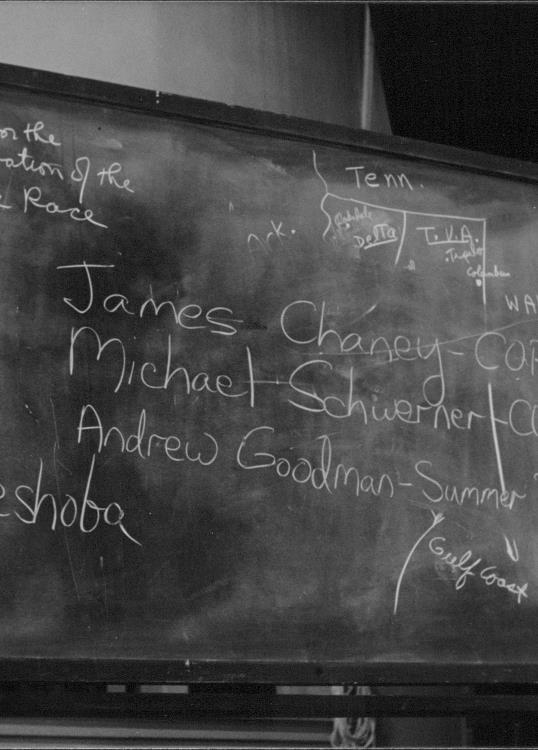 or the
ation of the
e Race
Tenn.
Ark.
Delta
T.V.A.
Tupelo
Columbus
WA
James Chaney-COR
Michael Schwerner-CO
Andrew Goodman-Summer
eshoba
Gulf Coast